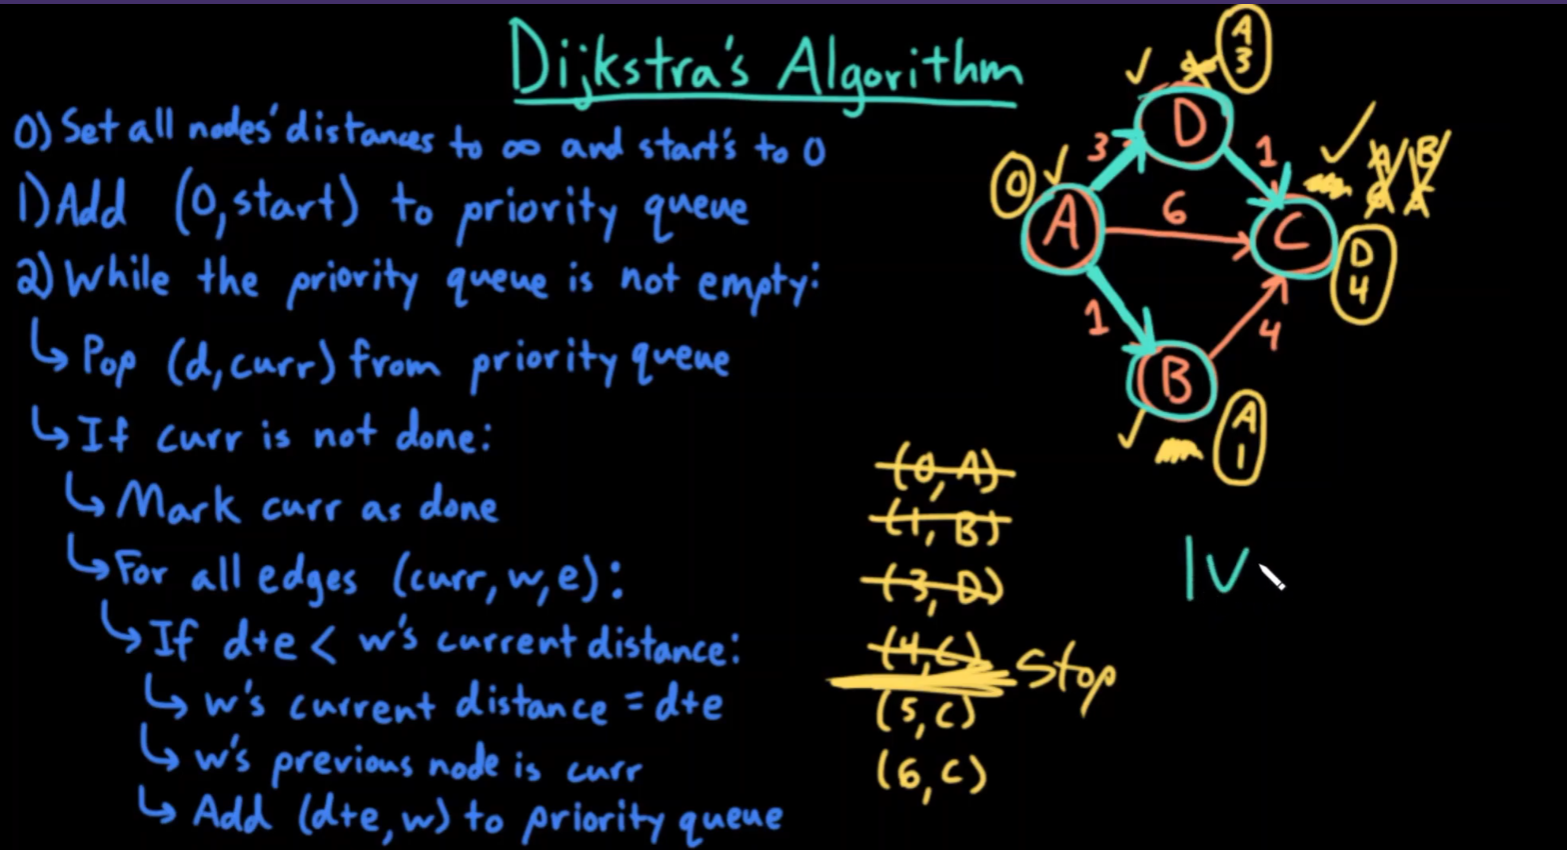 Dijkstra's Algorithm
0) Set all nodes' distances to ∞ and start's to 0
1) Add (0, start) to priority queue
2) While the priority queue is not empty:
↳ Pop (d, curr) from priority queue
↳ If curr is not done:
↳ Mark curr as done
↳ For all edges (curr, w, e):
↳ If d+e < w's current distance:
↳ w's current distance = d+e
↳ w's previous node is curr
↳ Add (d+e, w) to priority queue
A
3
D
3
1
A B
0
A
6
C
D
4
1
4
B
A
1
(0, A)
(1, B)
(3, D)
(4, C)
Stop
(5, C)
(6, C)
|V